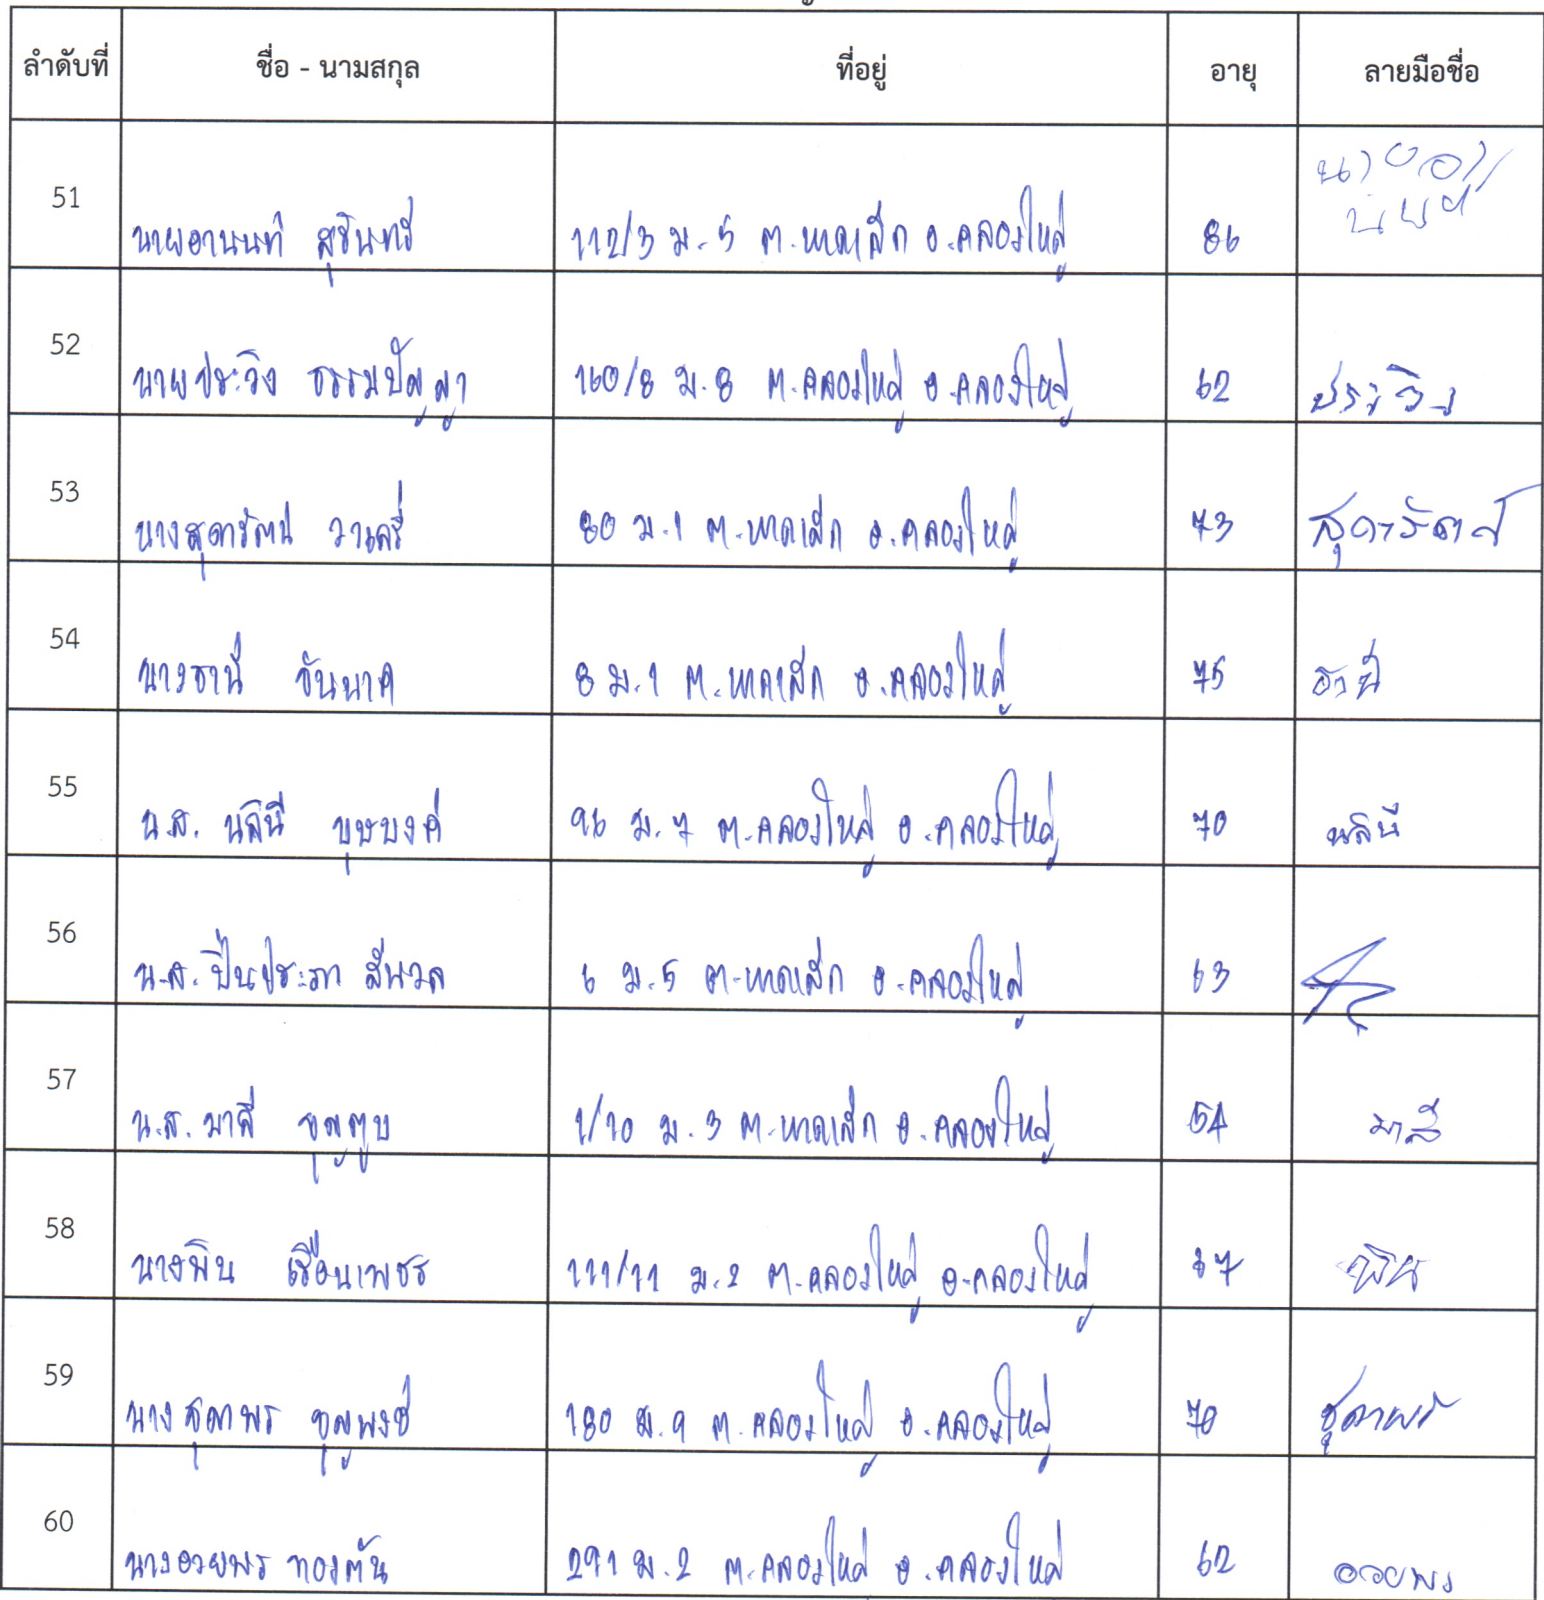 ลำดับที่ ชื่อ - นามสกุล ที่อยู่ อายุ ลายมือชื่อ
51 นายอานนท์ สุรินทร์ 112/3 ม.5 ต.หาดเล็ก อ.คลองใหญ่ 86
52 นายประวิง ธรรมปัญญา 160/8 ม.8 ต.คลองใหญ่ อ.คลองใหญ่ 62 ประวิง
53 นางสุดารัตน์ วาลศรี 80 ม.1 ต.หาดเล็ก อ.คลองใหญ่ 73 สุดารัตน์
54 นางธานี ขันนาค 8 ม.1 ต.หาดเล็ก อ.คลองใหญ่ 75 ธานี
55 น.ส. นลินี บุษบงค์ 96 ม.7 ต.คลองใหญ่ อ.คลองใหญ่ 70 นลินี
56 น.ส. ปิ่นประภา สีนวล 6 ม.5 ต.หาดเล็ก อ.คลองใหญ่ 63
57 น.ส. มาลี 1/10 ม.3 ต.หาดเล็ก อ.คลองใหญ่ 54 มาลี
58 นางพิน เรือนเพชร 111/11 ม.2 ต.คลองใหญ่ อ.คลองใหญ่ พิน
59 นางชุดาพร บุญพงษ์ 180 ม.9 ต.คลองใหญ่ อ.คลองใหญ่ 70 ชุดาพร
60 นางอวยพร ทองตัน 291 ม.2 ต.คลองใหญ่ อ.คลองใหญ่ 62 อวยพร